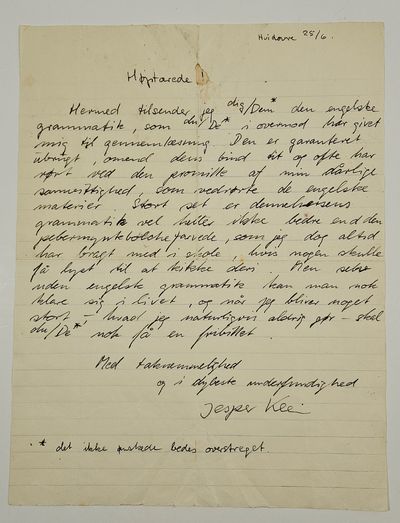 Hvidovre 25/6.
Højtærede !
Hermed tilsender jeg dig/Dem* den engelske
grammatik, som du/De* i overmod har givet
mig til gennemlæsning. Den er garanteret
ubrugt, omend dens bind tit og ofte har
rørt ved den promille af min dårlige
samvittighed, som vedrørte de engelske
materier. Stort set er
grammatik vel heller ikke bedre end den
pebermyntebolchefarvede, som jeg dog altid
har bragt med i skole, hvis nogen skulle
få lyst til at kikke deri. Men selv
uden engelsk grammatik kan man nok
klare sig i livet, og når jeg bliver noget
stort – hvad jeg naturligvis aldrig gør – skal
du/De* nok få en fribillet.
Med taknemmelighed
og i dybeste underfundighed
Jesper Klein
* det ikke ønskede bedes overstreget.